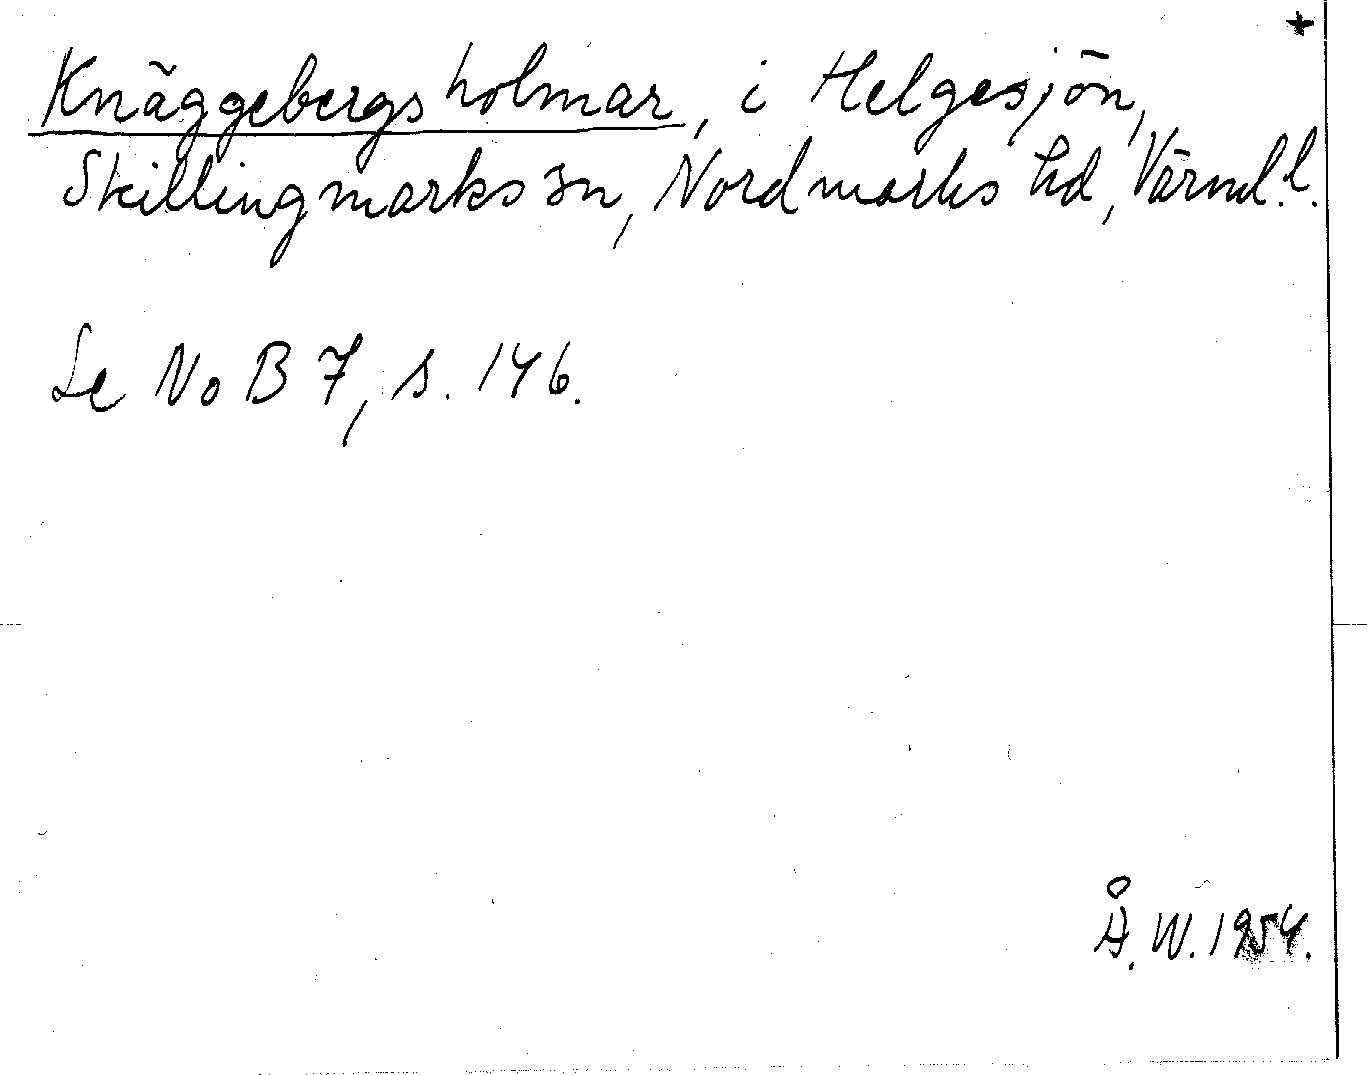 +
Knäggebergsholmar, i Helgesjön,
Skillingmarks sn, Nordmarks hd, Värml. l.
Se NoB 7, s. 146.
Å. W. 1954.